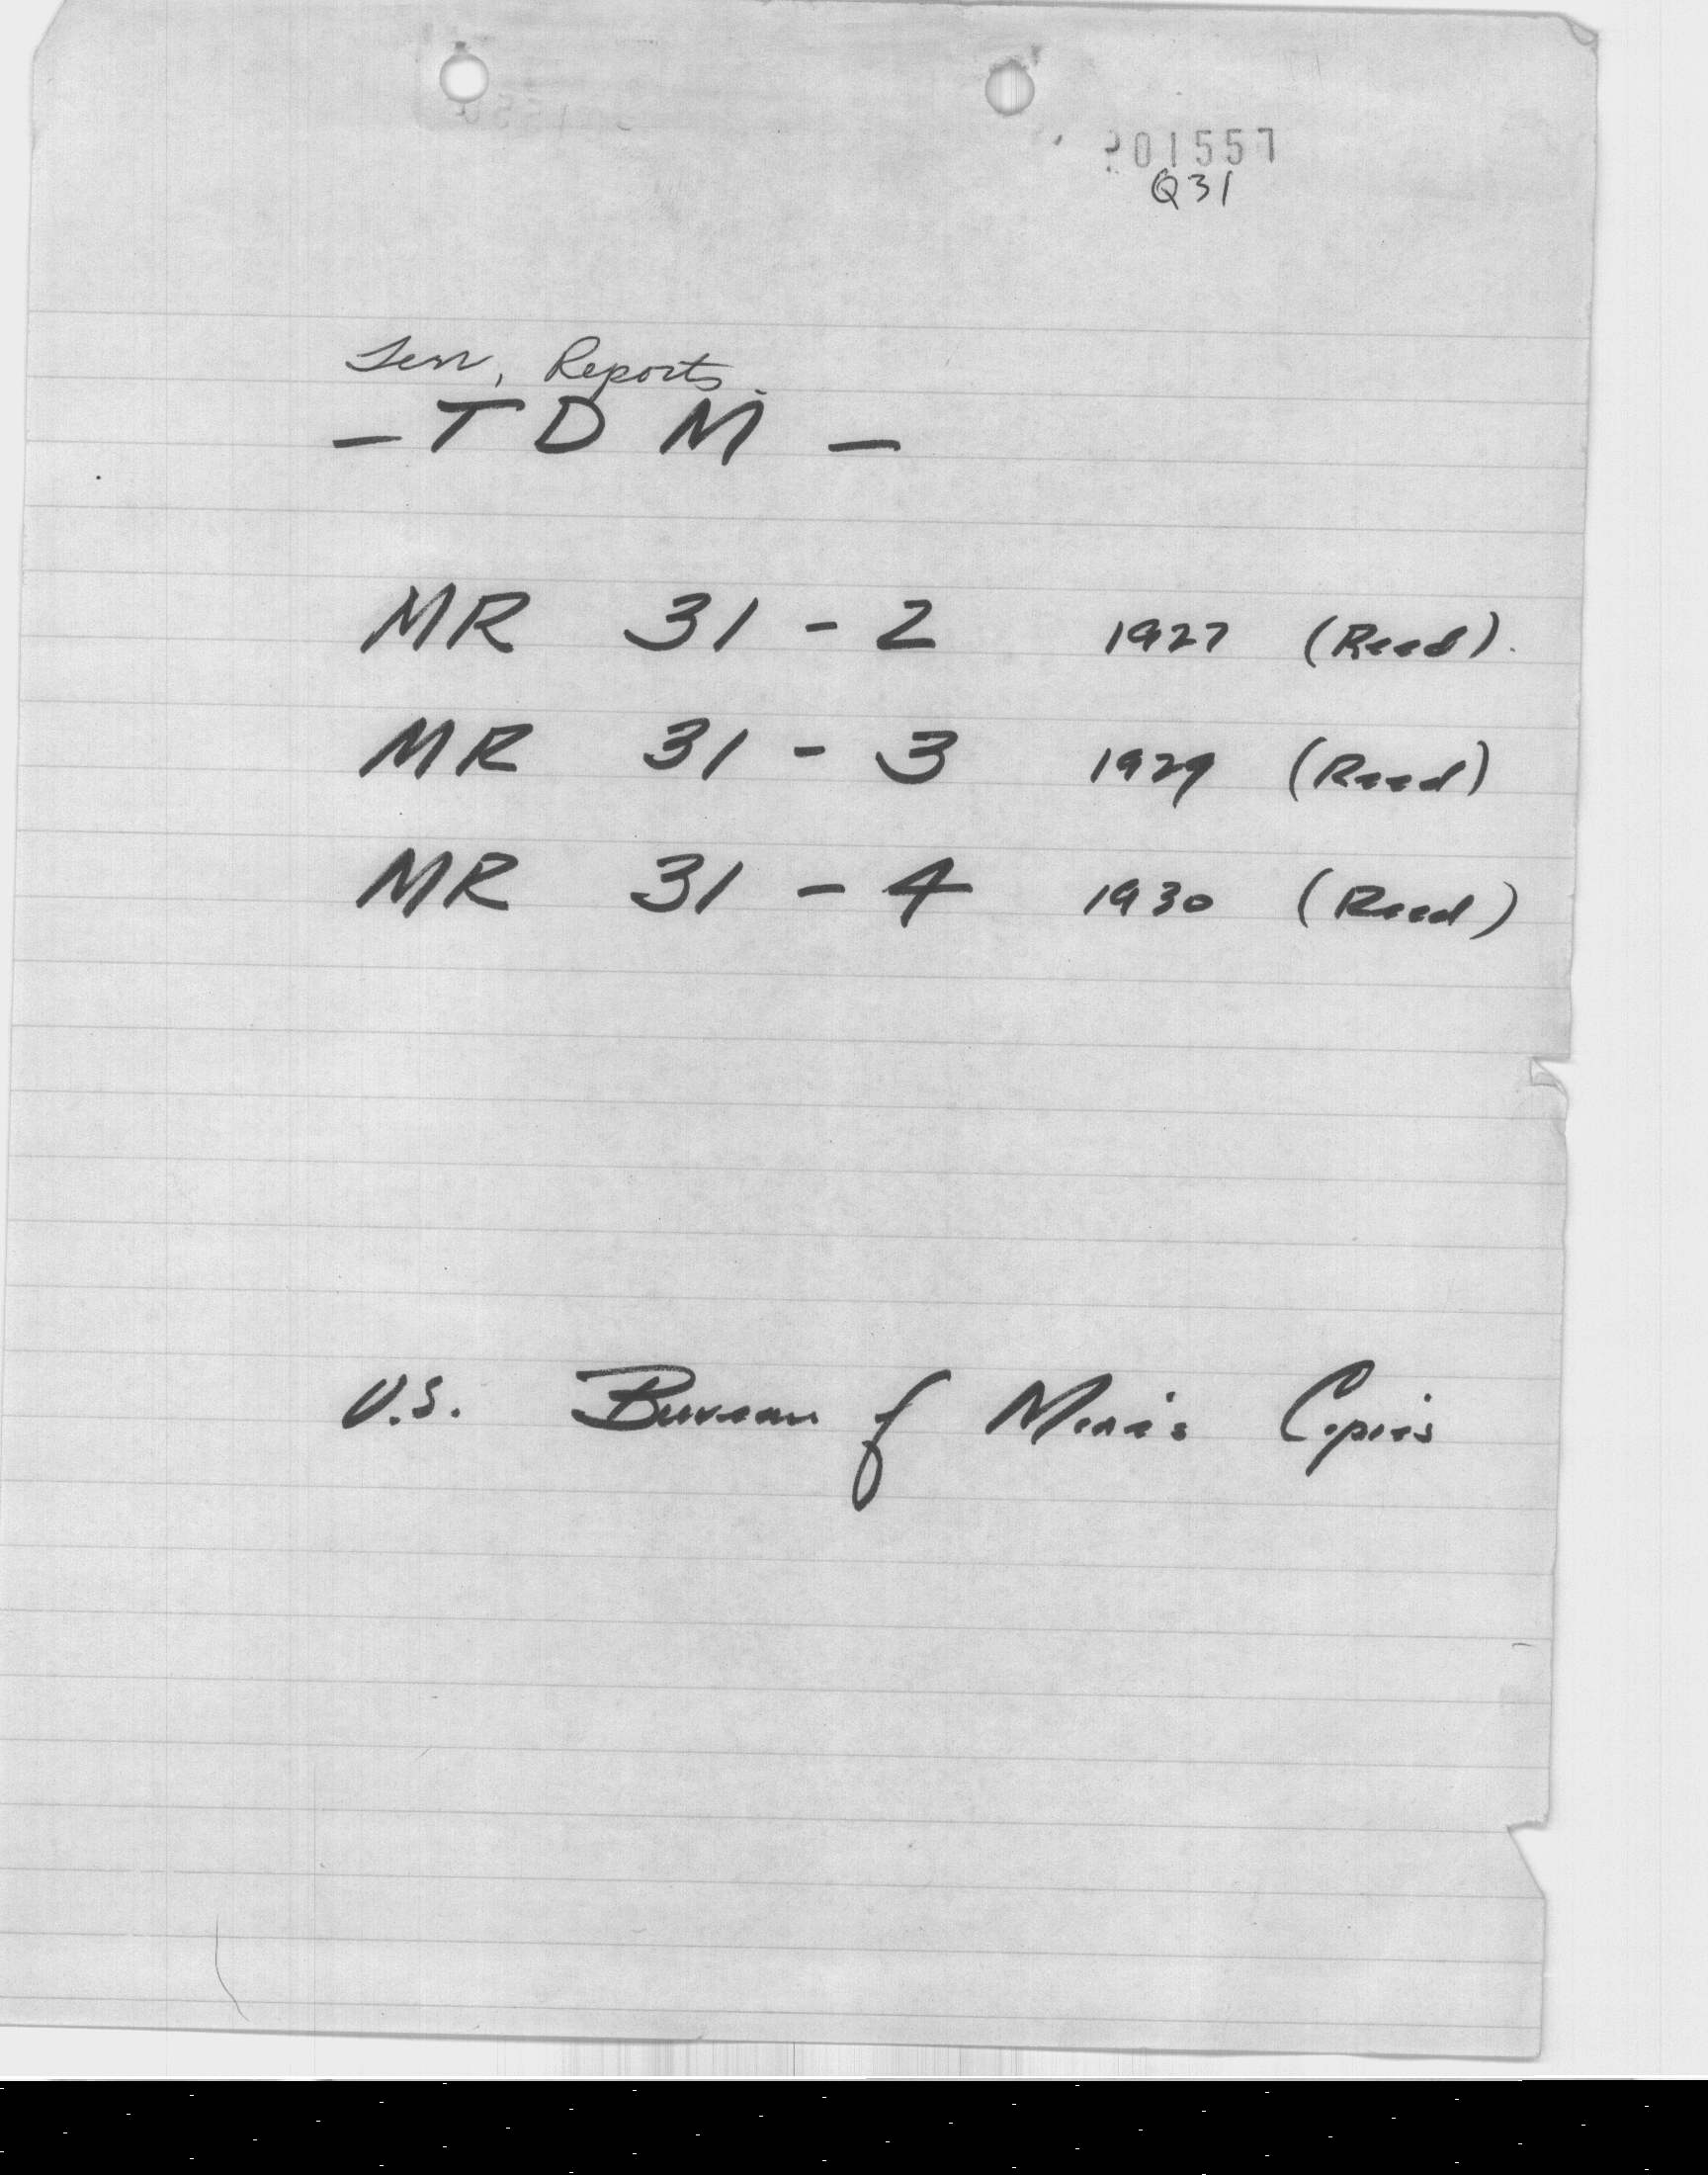 201557
Q31
Terr, Reports.
- T D M -
MR 31 - 2 1927 (Reed).
MR 31 - 3 1929 (Reed)
MR 31 - 4 1930 (Reed)
U.S. Bureau of Mines Copies